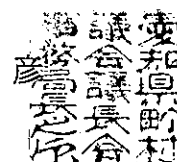 愛知県町村
議会議長会
長之印
彦